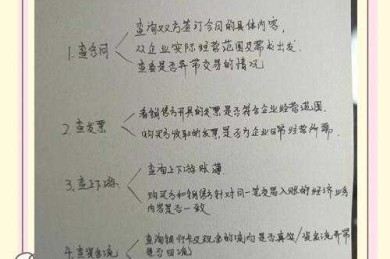 查询双方签订合同的具体内容,
1.查合同 从企业实际经营范围及需求出发.
查看是否异常交易的情况
看销售方开具的发票是否符合企业经营范围.
2.查发票
购买方收取的发票是否为企业日常经营所需.
查询上下游账簿
3.查上下游
购买方和销售方针对同一笔交易入账的经济业务
内容是否一致
4.查资金流 查询银行卡及现金的流向是否真实/资金流异常
是否回流